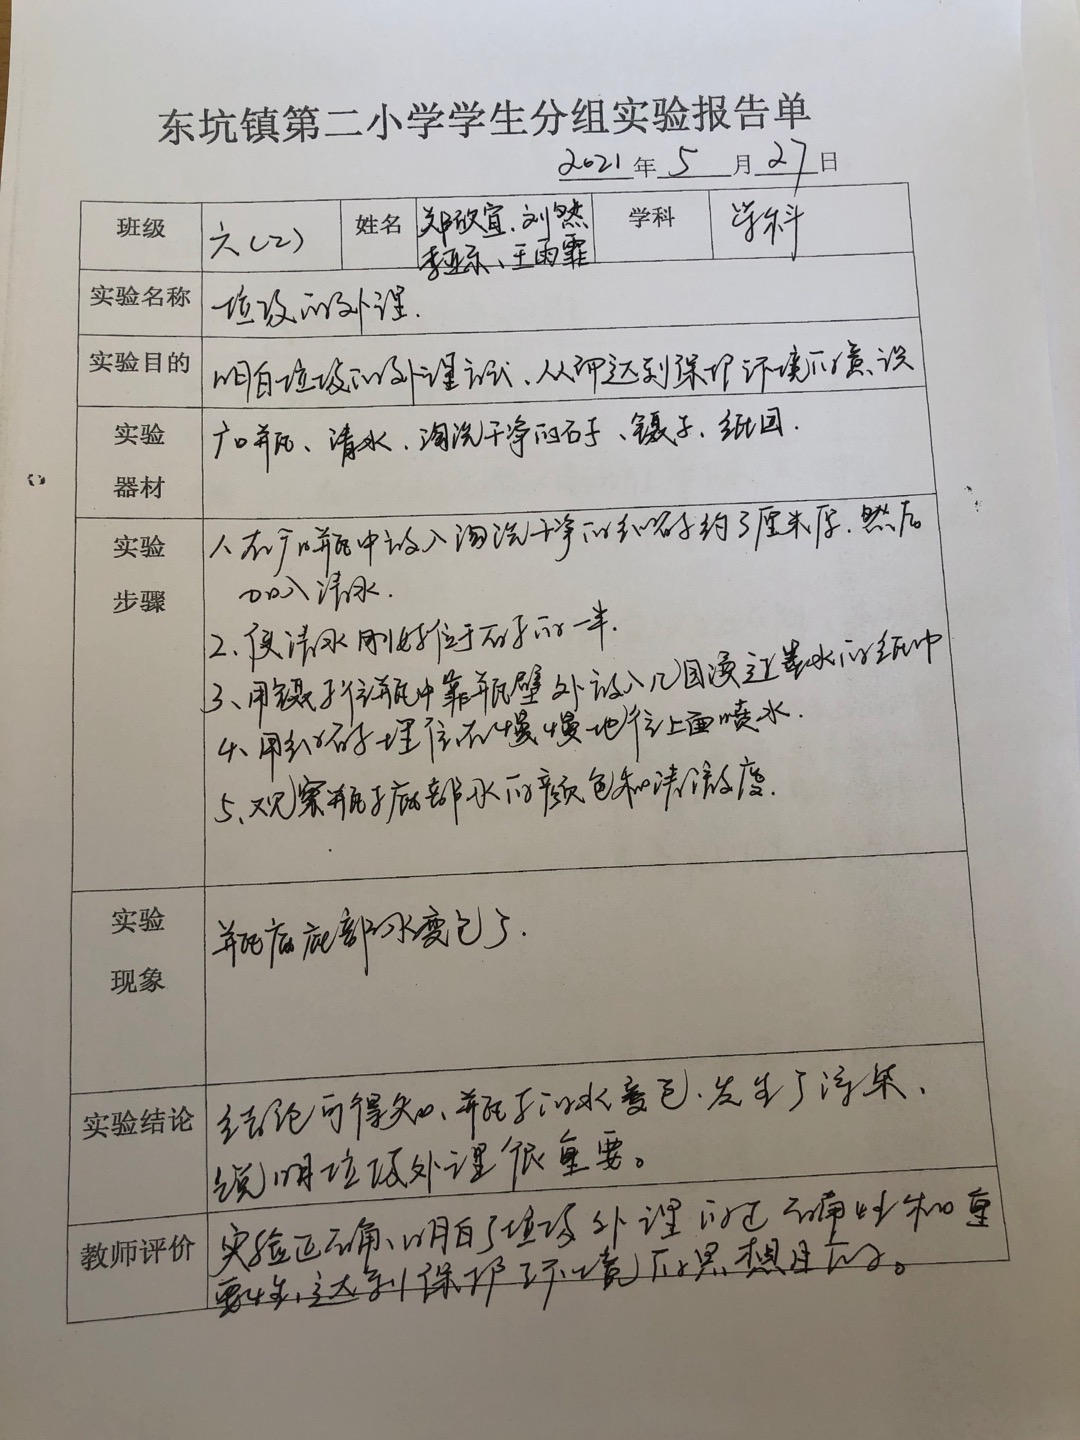 东坑镇第二小学学生分组实验报告单
2021年5月27日
班级 六(2) 姓名 郑欣宜、刘然 学科 学科
李亚东、王雨霏
实验名称 垃圾的处理.
实验目的 明白垃圾的处理方式、从而达到保护环境的意识
实验 广口瓶、清水、淘洗干净的石子、镊子、纸团.
器材
实验 1、在广口瓶中放入淘洗干净的细石子约3厘米厚、然后
步骤 加入清水.
2、使清水刚好位于石子的一半.
3、用镊子往瓶中靠瓶壁处放入几团浸过墨水的纸巾
4、用细石子埋住在慢慢地往上面喷水.
5、观察瓶子底部水的颜色和清澈度.
实验 瓶底底部的水变色了.
现象
实验结论 结论可得知、瓶子的水变色、发生了污染、
说明垃圾处理很重要。
教师评价 实验正确、明白了垃圾处理的正确性和重
要性、达到保护环境的思想目的。